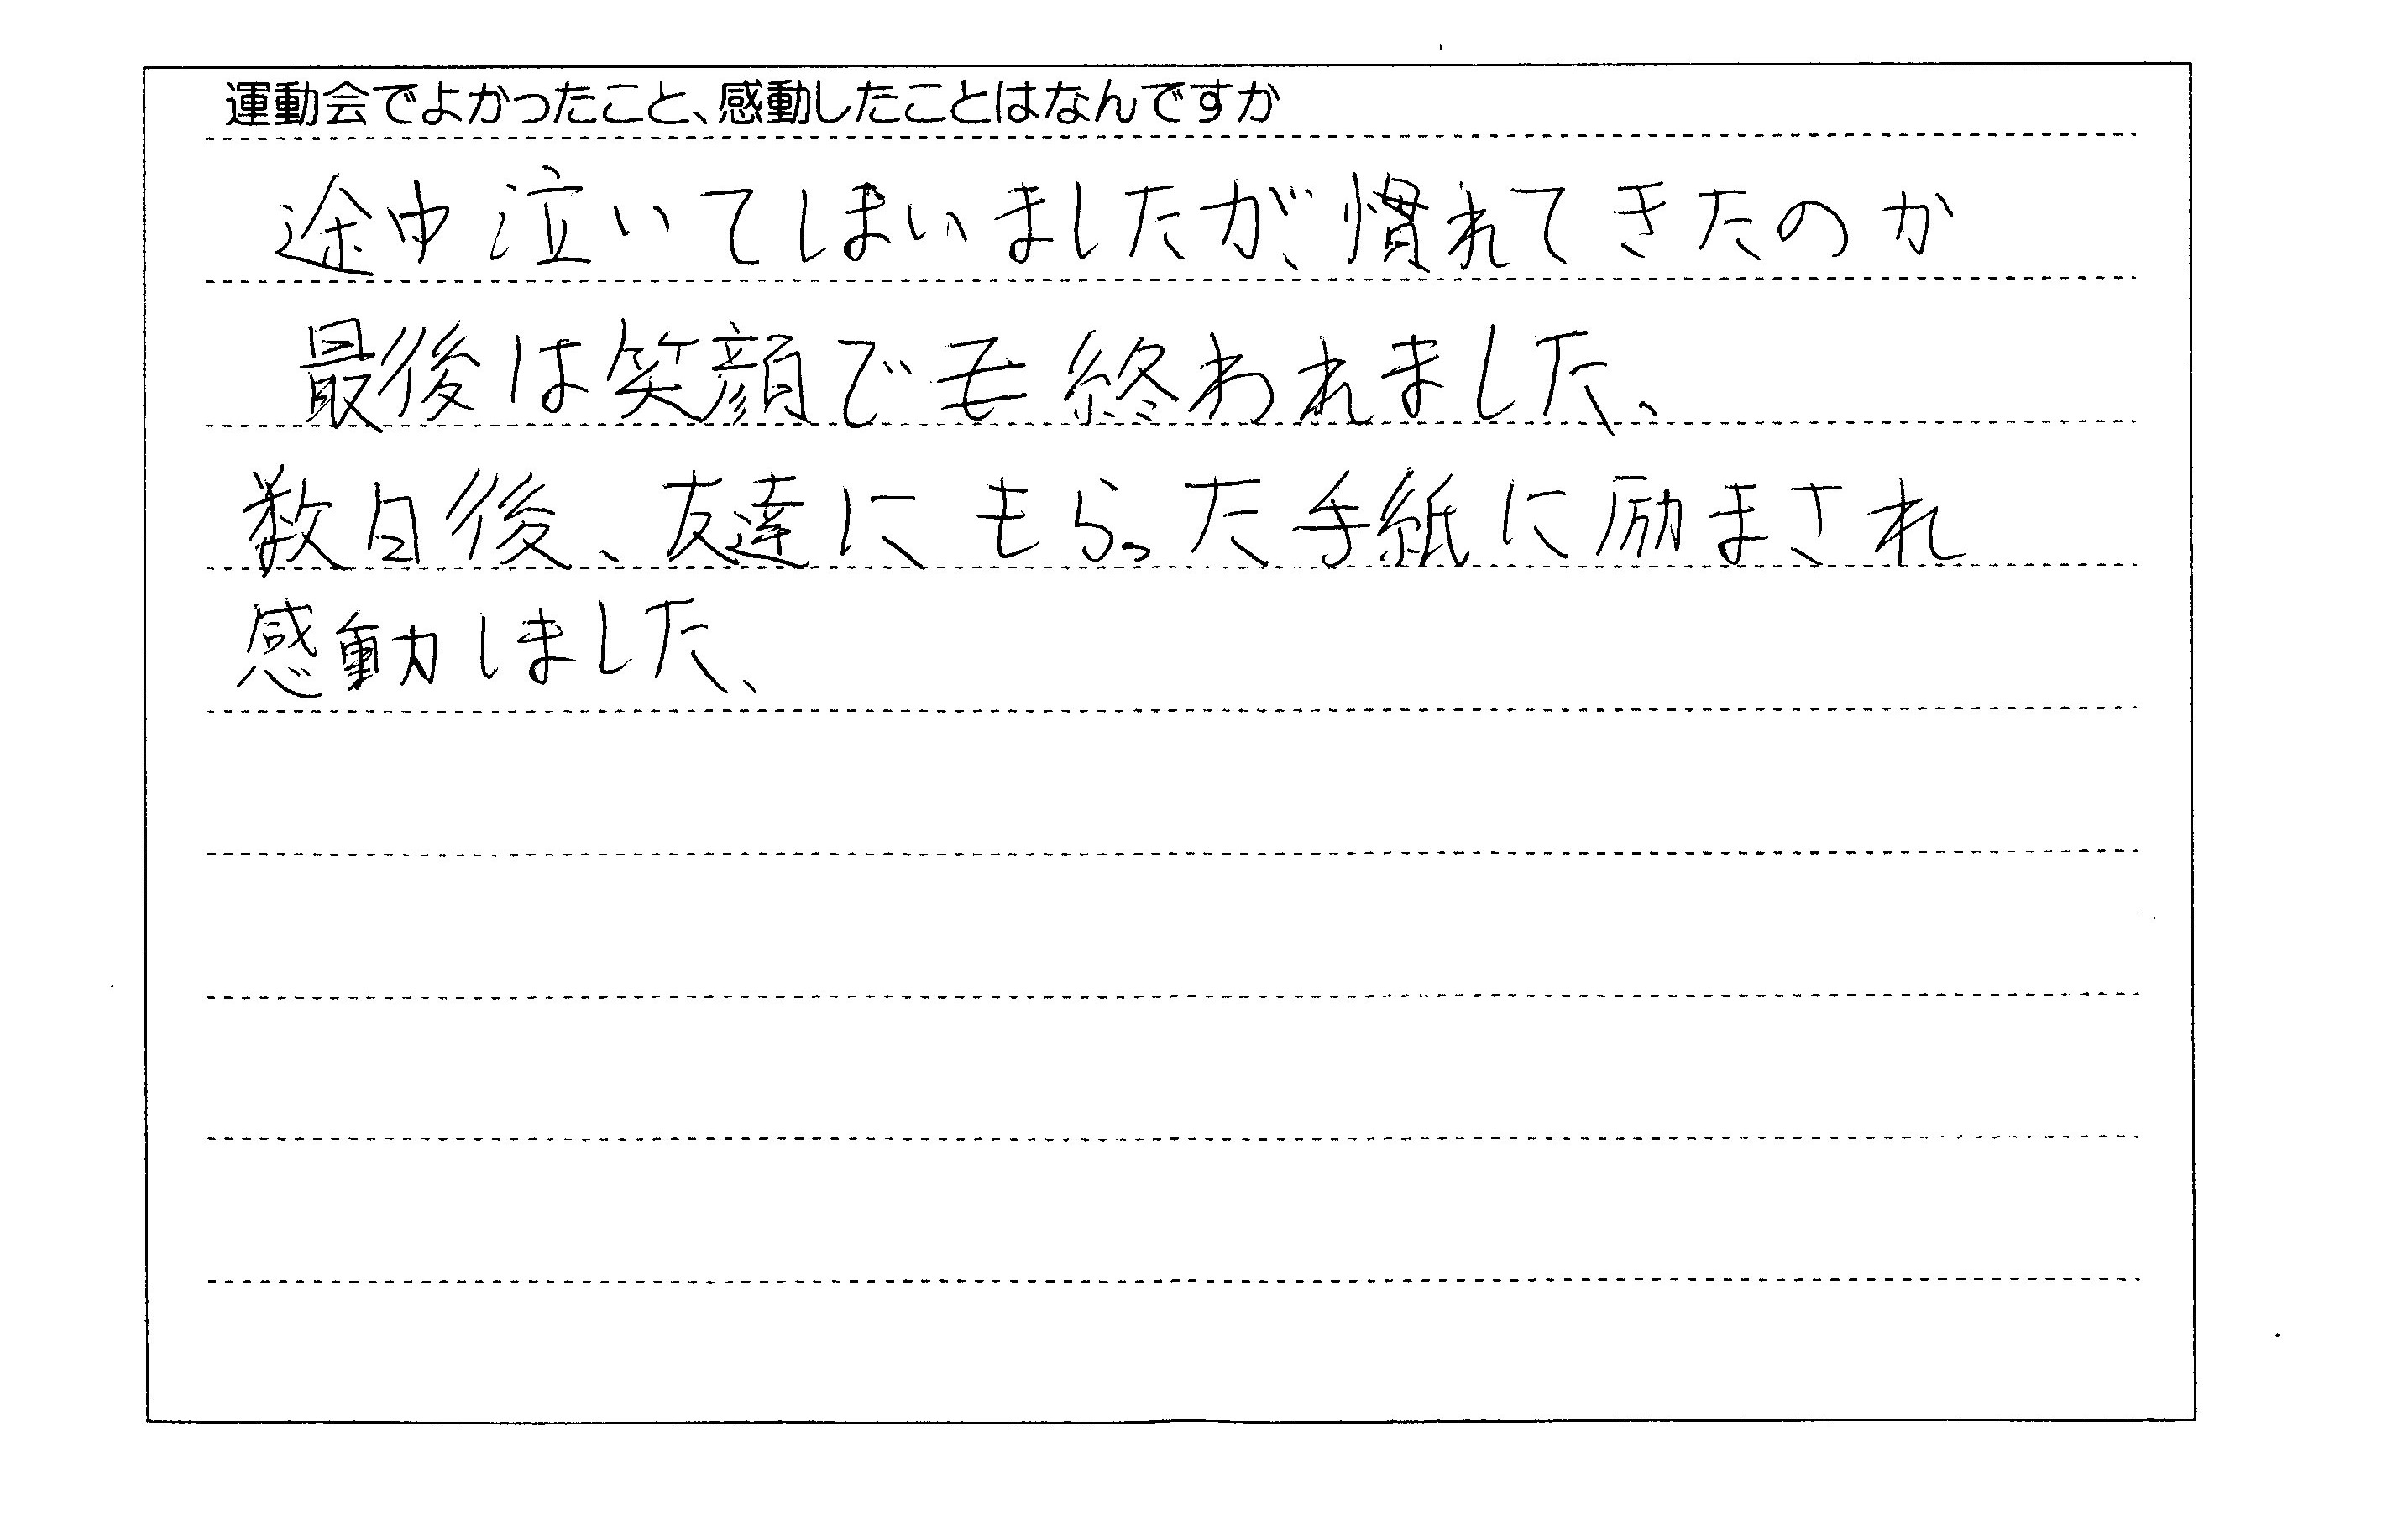 運動会でよかったこと、感動したことはなんですか
途中泣いてしまいましたが、慣れてきたのか
最後は笑顔でも終われました、
数日後、友達にもらった手紙に励まされ
感動しました、